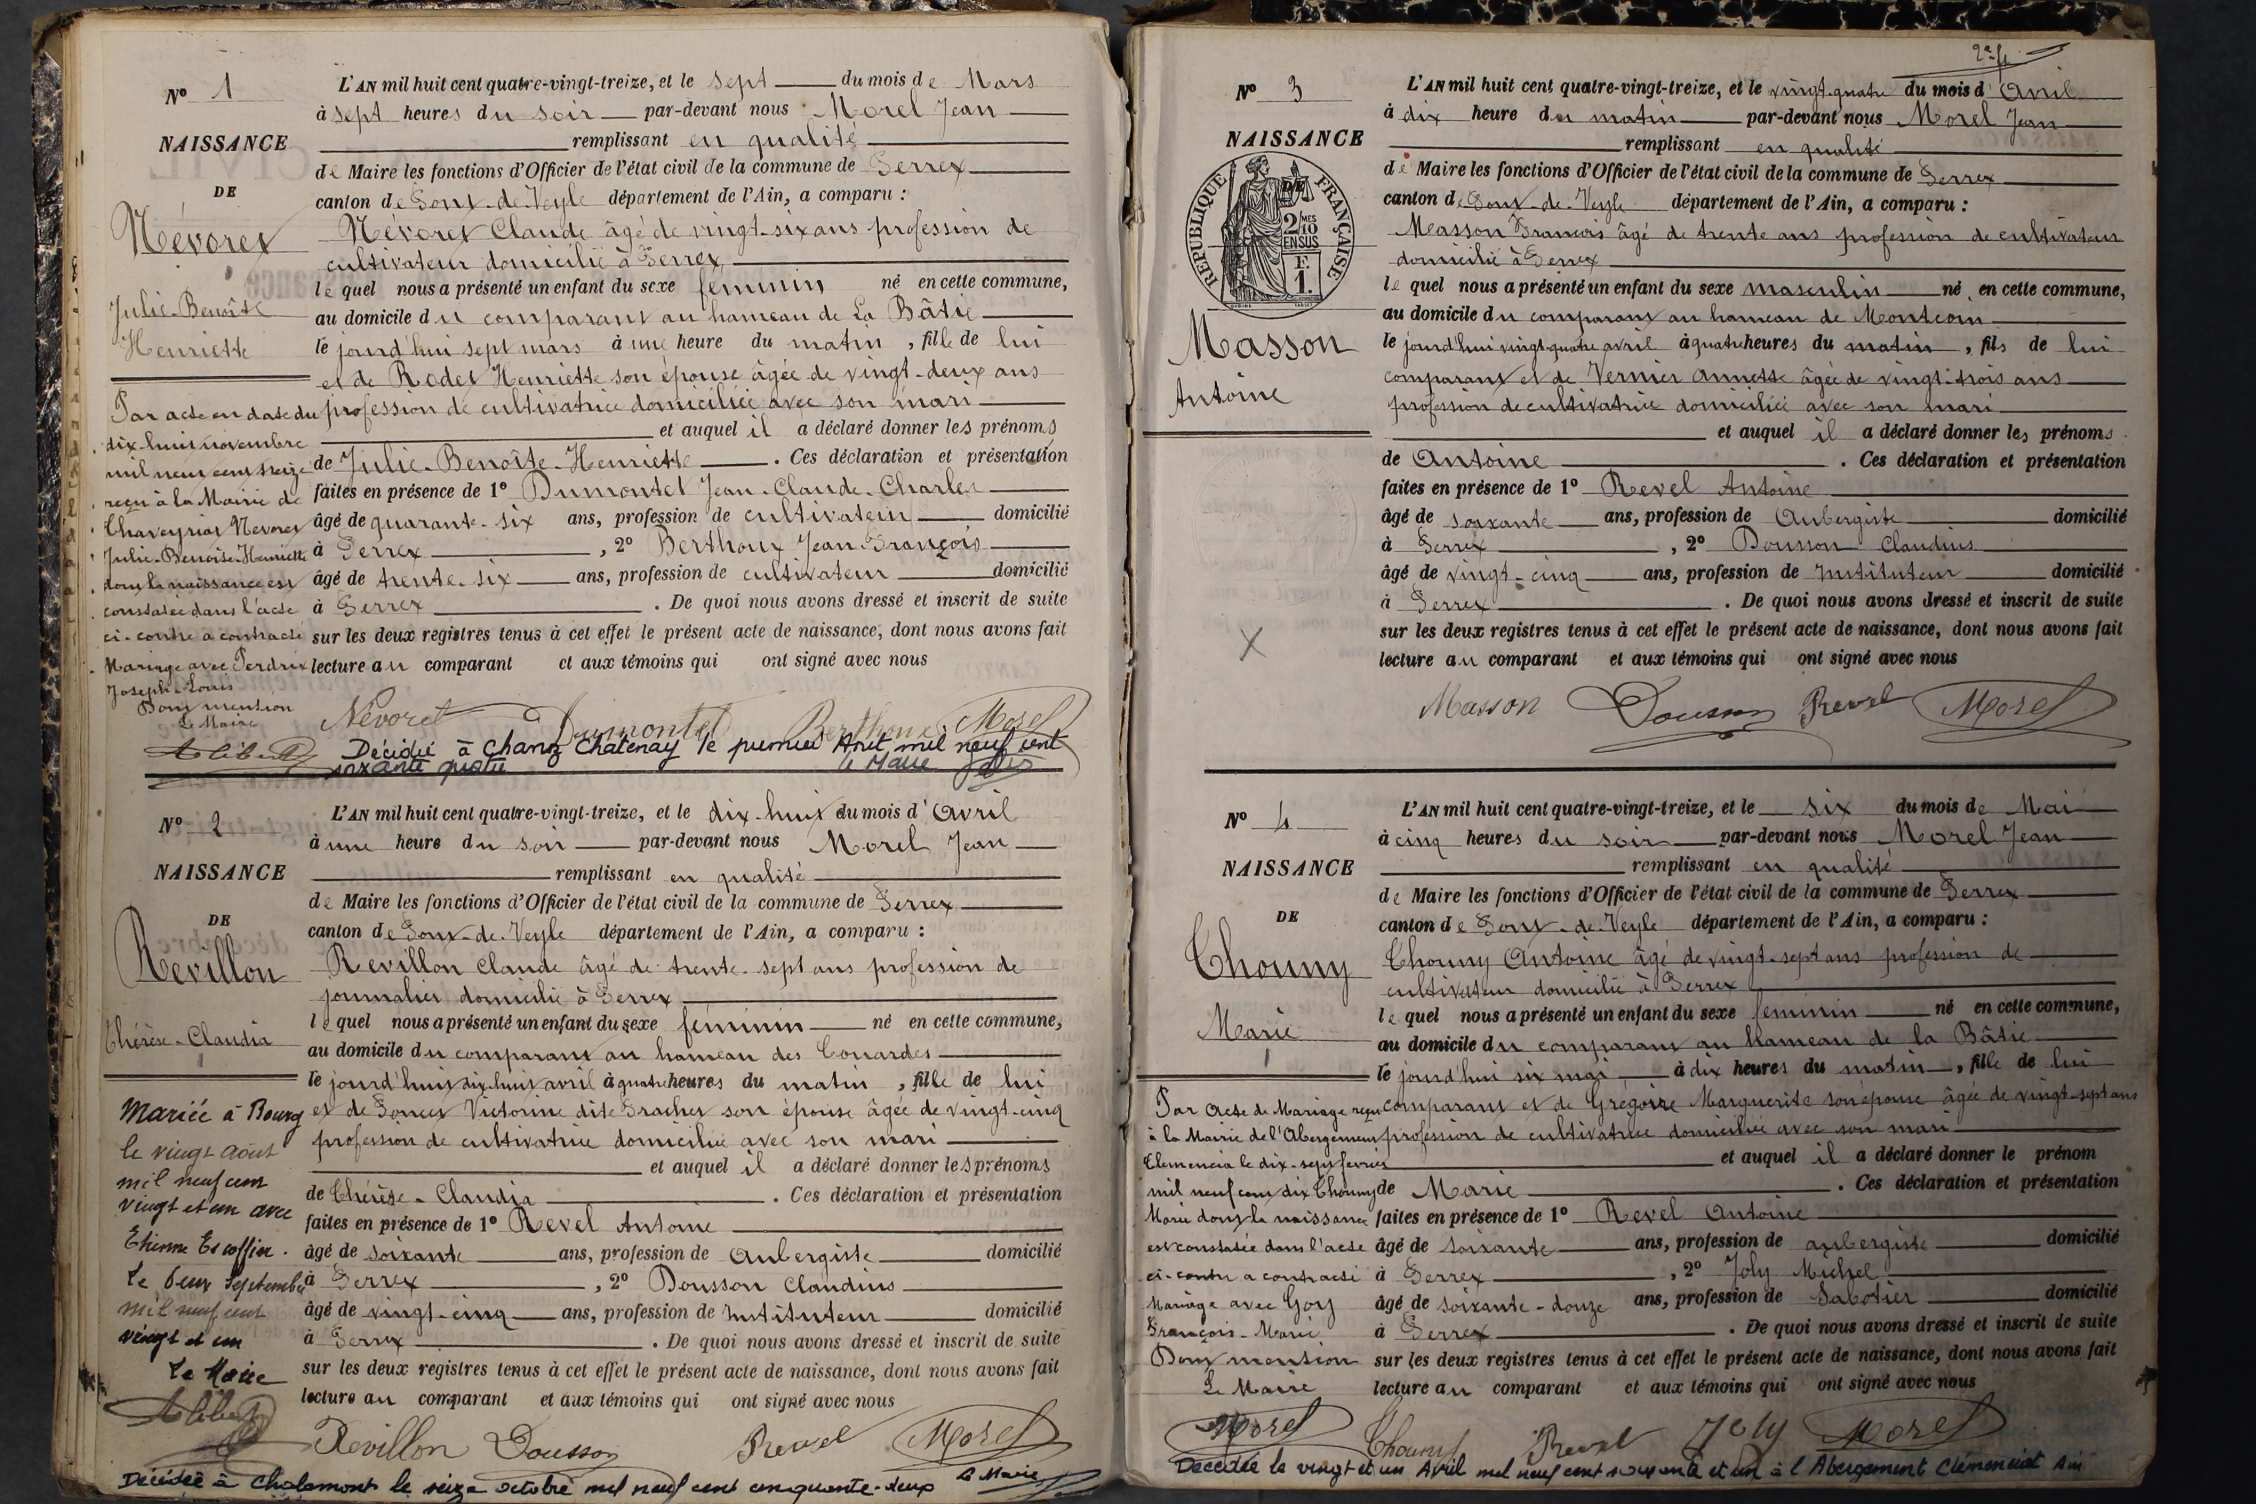 N° 1
NAISSANCE
DE
Névoret
Julie-Benoîte
Henriette
Par acte en date du
dix-huit novembre
mil neuf cent treize
reçu à la Mairie de
Chaveyriat Nevoret
Julie-Benoîte-Henriette
dont la naissance est
constatée dans l'acte
ci-contre a contracté
Mariage avec Perdrix
Joseph-Louis
Dont mention
Le Maire
L'AN mil huit cent quatre-vingt-treize, et le sept du mois de Mars
à sept heures du soir par-devant nous Morel Jean
remplissant en qualité
de Maire les fonctions d'Officier de l'état civil de la commune de Perrex
canton de Pont-de-Veyle département de l'Ain, a comparu :
Névoret Claude âgé de vingt-six ans profession de
cultivateur domicilié à Perrex
le quel nous a présenté un enfant du sexe féminin né en cette commune,
au domicile du comparant au hameau de La Bâtie
le jourd'hui sept mars à une heure du matin, fille de lui
et de Rodet Henriette son épouse âgée de vingt-deux ans
profession de cultivatrice domiciliée avec son mari
et auquel il a déclaré donner les prénoms
de Julie-Benoîte-Henriette. Ces déclaration et présentation
faites en présence de 1° Dumontet Jean-Claude-Charles
âgé de quarante-six ans, profession de cultivateur domicilié
à Perrex, 2° Berthoux Jean-François
âgé de trente-six ans, profession de cultivateur domicilié
à Perrex. De quoi nous avons dressé et inscrit de suite
sur les deux registres tenus à cet effet le présent acte de naissance, dont nous avons fait
lecture au comparant et aux témoins qui ont signé avec nous
Névoret Dumontet Berthoux Morel
Décédée à Chanoz Chatenay le premier Août mil neuf cent
soixante quatre Le Maire
N° 2
NAISSANCE
DE
Revillon
Thérèse-Claudia
Mariée à Bourg
le vingt août
mil neuf cent
vingt et un avec
Etienne Escoffier.
Le deux Septembre
mil neuf cent
vingt et un
Le Maire
L'AN mil huit cent quatre-vingt-treize, et le dix-huit du mois d'Avril
à une heure du soir par-devant nous Morel Jean
remplissant en qualité
de Maire les fonctions d'Officier de l'état civil de la commune de Perrex
canton de Pont-de-Veyle département de l'Ain, a comparu :
Revillon Claude âgé de trente-sept ans profession de
journalier domicilié à Perrex
le quel nous a présenté un enfant du sexe féminin né en cette commune,
au domicile du comparant au hameau des Couardes
le jourd'hui dix-huit avril à quatre heures du matin, fille de lui
et de Poncet Victorine dite Frachet son épouse âgée de vingt-cinq
profession de cultivatrice domiciliée avec son mari
et auquel il a déclaré donner les prénoms
de Thérèse-Claudia. Ces déclaration et présentation
faites en présence de 1° Revel Antoine
âgé de soixante ans, profession de Aubergiste domicilié
à Perrex, 2° Dousson Claudius
âgé de vingt-cinq ans, profession de Instituteur domicilié
à Perrex. De quoi nous avons dressé et inscrit de suite
sur les deux registres tenus à cet effet le présent acte de naissance, dont nous avons fait
lecture au comparant et aux témoins qui ont signé avec nous
Revillon Dousson Revel Morel
Décédée à Chalamont le seize octobre mil neuf cent cinquante-deux Le Maire
N° 3
NAISSANCE
DE
RÉPUBLIQUE FRANÇAISE
2/10 MES
EN SUS
F.
1.
Masson
Antoine
X
L'AN mil huit cent quatre-vingt-treize, et le vingt-quatre du mois d'Avril
à dix heure du matin par-devant nous Morel Jean
remplissant en qualité
de Maire les fonctions d'Officier de l'état civil de la commune de Perrex
canton de Pont-de-Veyle département de l'Ain, a comparu :
Masson François âgé de trente ans profession de cultivateur
domicilié à Perrex
le quel nous a présenté un enfant du sexe masculin né en cette commune,
au domicile du comparant au hameau de Montcorin
le jourd'hui vingt-quatre avril à quatre heures du matin, fils de lui
comparant et de Vernier Annette âgée de vingt-trois ans
profession de cultivatrice domiciliée avec son mari
et auquel il a déclaré donner les prénoms
de Antoine. Ces déclaration et présentation
faites en présence de 1° Revel Antoine
âgé de soixante ans, profession de Aubergiste domicilié
à Perrex, 2° Dousson Claudius
âgé de vingt-cinq ans, profession de Instituteur domicilié
à Perrex. De quoi nous avons dressé et inscrit de suite
sur les deux registres tenus à cet effet le présent acte de naissance, dont nous avons fait
lecture au comparant et aux témoins qui ont signé avec nous
Masson Dousson Revel Morel
N° 4
NAISSANCE
DE
Thouny
Marie
Par acte de Mariage reçu
à la Mairie de l'Abergement
Clemencia le dix-sept février
mil neuf cent dix Thouny
Marie dont la naissance
est constatée dans l'acte
ci-contre a contracté
Mariage avec Gory
François-Marie
Dont mention
Le Maire
Morel
L'AN mil huit cent quatre-vingt-treize, et le six du mois de Mai
à cinq heures du soir par-devant nous Morel Jean
remplissant en qualité
de Maire les fonctions d'Officier de l'état civil de la commune de Perrex
canton de Pont-de-Veyle département de l'Ain, a comparu :
Thouny Antoine âgé de vingt-sept ans profession de
cultivateur domicilié à Perrex
le quel nous a présenté un enfant du sexe féminin né en cette commune,
au domicile du comparant au hameau de la Bâtie
le jourd'hui six mai à dix heures du matin, fille de lui
comparant et de Grégoire Marguerite son épouse âgée de vingt-sept ans
profession de cultivatrice domiciliée avec son mari
et auquel il a déclaré donner le prénom
de Marie. Ces déclaration et présentation
faites en présence de 1° Revel Antoine
âgé de soixante ans, profession de aubergiste domicilié
à Perrex, 2° Joly Michel
âgé de soixante-douze ans, profession de Sabotier domicilié
à Perrex. De quoi nous avons dressé et inscrit de suite
sur les deux registres tenus à cet effet le présent acte de naissance, dont nous avons fait
lecture au comparant et aux témoins qui ont signé avec nous
Thouny Revel Joly Morel
Décédée le vingt et un Avril mil neuf cent soixante et un à l'Abergement Clémenciat Ain